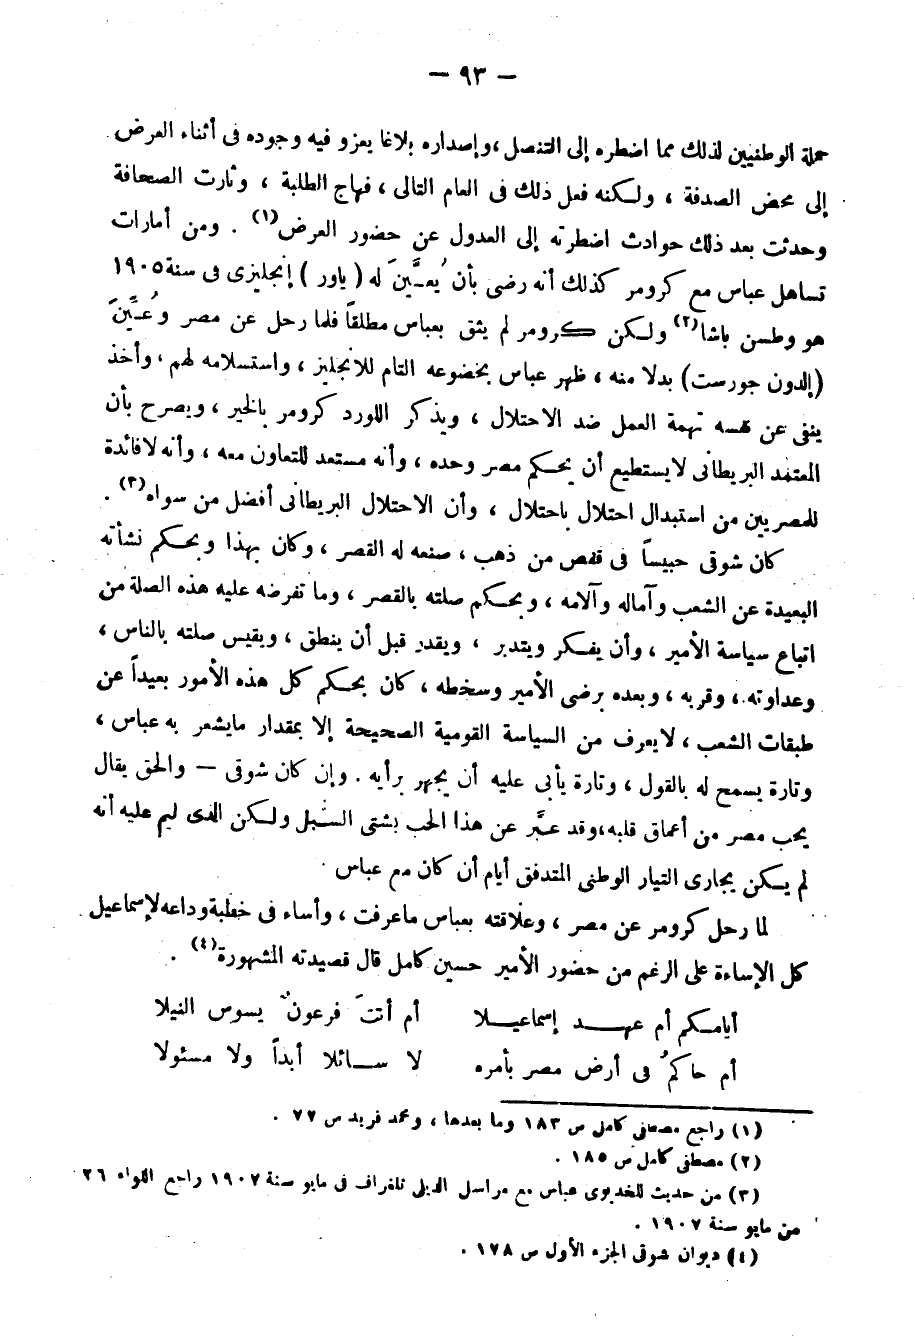 — ٩٣ —
حملة الوطنيين لذلك مما اضطره إلى التنصل ، وإصداره بلاغا يعزو فيه وجوده فى أثناء العرض
إلى محض الصدفة ، ولكنه فعل ذلك فى العام التالى ، فهاج الطلبة ، وثارت الصحافة
وحدثت بعد ذلك حوادث اضطرته إلى العدول عن حضور العرض(١) . ومن أمارات
تساهل عباس مع كرومر كذلك أنه رضى بأن يُعيَّنَ له ( ياور ) إنجليزى فى سنة ١٩٠٥
هو وطسن باشا(٢) ولكن كرومر لم يثق بعباس مطلقاً فلما رحل عن مصر وعُيِّنَ
(إلدون جورست) بدلا منه ، ظهر عباس بخضوعه التام للانجليز ، واستسلامه لهم ، وأخذ
ينفى عن نفسه تهمة العمل ضد الاحتلال ، ويذكر اللورد كرومر بالخير ، ويصرح بأن
المعتمد البريطانى لايستطيع أن يحكم مصر وحده ، وأنه مستعد للتعاون معه ، وأنه لافائدة
للمصريين من استبدال احتلال باحتلال ، وأن الاحتلال البريطانى أفضل من سواه(٣) .
كان شوقى حبيساً فى قفص من ذهب ، صنعه له القصر ، وكان بهذا وبحكم نشأته
البعيدة عن الشعب وآماله وآلامه ، وبحكم صلته بالقصر ، وما تفرضه عليه هذه الصلة من
اتباع سياسة الأمير ، وأن يفكر ويتدبر ، ويقدر قبل أن ينطق ، ويقيس صلته بالناس ،
وعداوته ، وقربه ، وبعده برضى الأمير وسخطه ، كان بحكم كل هذه الأمور بعيداً عن
طبقات الشعب ، لايعرف من السياسة القومية الصحيحة إلا بمقدار مايشعر به عباس ،
وتارة يسمح له بالقول ، وتارة يأبى عليه أن يجهر برأيه . وإن كان شوقى — والحق يقال
يحب مصر من أعماق قلبه ، وقد عبَّر عن هذا الحب بشتى السُّبل ولكن الذى ليم عليه أنه
لم يكن يجارى التيار الوطنى المتدفق أيام أن كان مع عباس .
لما رحل كرومر عن مصر ، وعلاقته بعباس ماعرفت ، وأساء فى خطبة وداعه لإسماعيل
كل الإساءة على الرغم من حضور الأمير حسين كامل قال قصيدته المشهورة(٤) .
أيامكم أم عهد إسماعيلا أم أنتَ فرعونٌ يسوس النيلا
أم حاكمٌ فى أرض مصر بأمره لا سائلا أبداً ولا مسئولا
(١) راجع مصطفى كامل ص ١٨٣ وما بعدها ، ومحمد فريد ص ٧٧ .
(٢) مصطفى كامل ص ١٨٥ .
(٣) من حديث للخديوى عباس مع مراسل الديلى تلغراف فى مايو سنة ١٩٠٧ راجع اللواء ٢٦
من مايو سنة ١٩٠٧ .
(٤) ديوان شوقى الجزء الأول ص ١٧٨ .